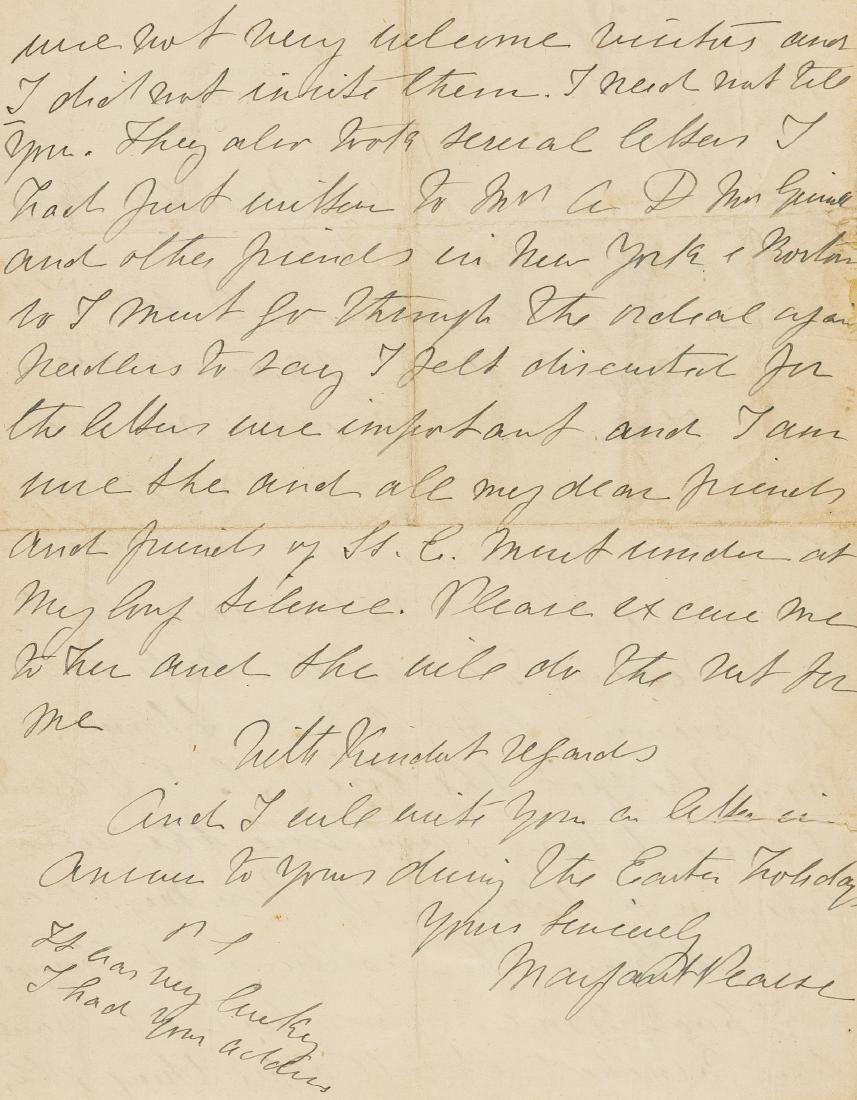 were not very welcome visitors and
I did not invite them. I need not tell
you. They also took several letters I
had just written to Mrs A D
and other friends in New York & Boston
so I must go through the ordeal again
needless to say I felt disgusted for
the letters were important and I am
sure she and all my dear friends
and friends of St. E. must wonder at
my long silence. Please excuse me
to her and she will do the rest for
me
With Kindest regards
And I will write you a letter in
answer to yours during the Easter holidays
Yours Sincerely
Margaret Pearse
It was very lucky
I had your address